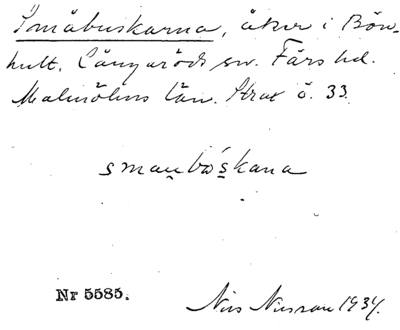 Småbuskarna, åker i Bön-
hult. Långaröds sn. Färs hd.
Malmöhus län. Strax ö. 33.
smau̯bo̍skana
Nr 5585.
Nils Nilsson 1934.